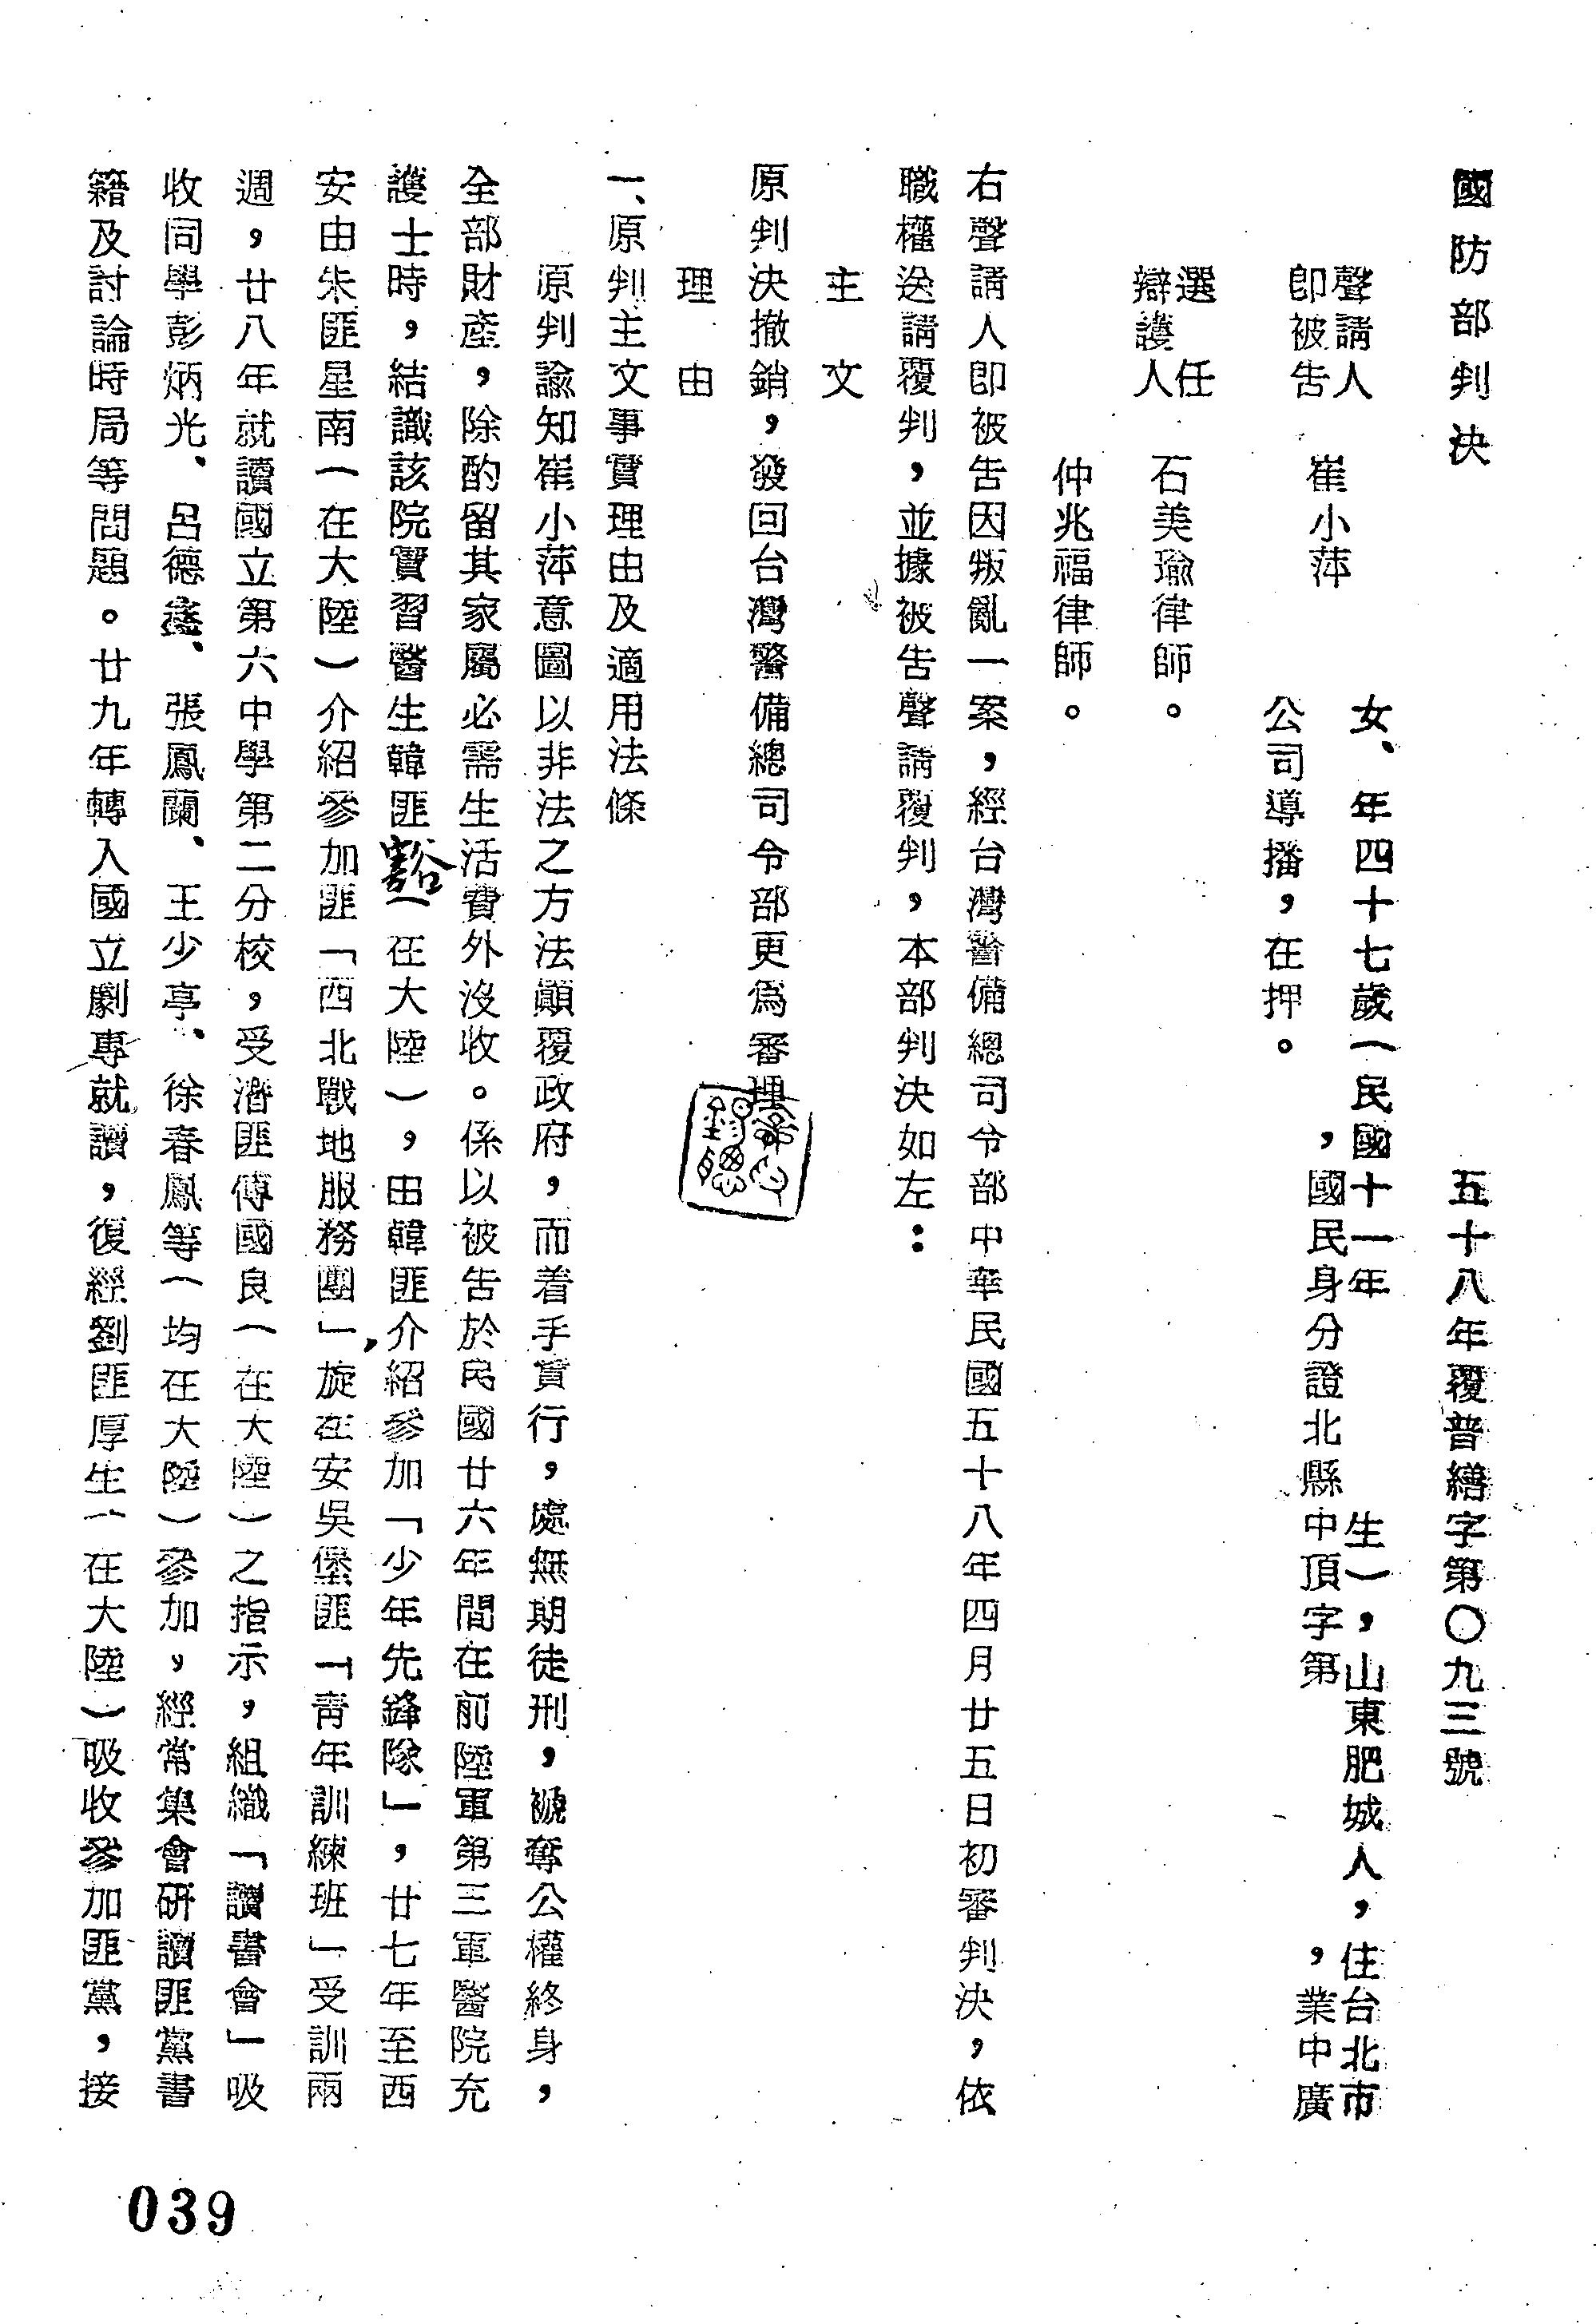 國防部判決
五十八年覆普繕字第〇九三號
聲請人
即被告
崔小萍
女、年四十七歲（民國十一年
生），山東肥城人，住台北市
，國民身分證北縣中頂字第
，業中廣
公司導播，在押。
選任
辯護人
石美瑜律師。
仲兆福律師。
右聲請人即被告因叛亂一案，經台灣警備總司令部中華民國五十八年四月廿五日初審判決，依
職權送請覆判，並據被告聲請覆判，本部判決如左：
主文
原判決撤銷，發回台灣警備總司令部更為審理。
理由
一、原判主文事實理由及適用法條
原判諭知崔小萍意圖以非法之方法顛覆政府，而着手實行，處無期徒刑，褫奪公權終身，
全部財產，除酌留其家屬必需生活費外沒收。係以被告於民國廿六年間在前陸軍第三軍醫院充
護士時，結識該院實習醫生韓匪豁（在大陸），由韓匪介紹參加「少年先鋒隊」，廿七年至西
安由朱匪星南（在大陸）介紹參加匪「西北戰地服務團」，旋在安吳堡匪「青年訓練班」受訓兩
週，廿八年就讀國立第六中學第二分校，受潛匪傅國良（在大陸）之指示，組織「讀書會」吸
收同學彭炳光、呂德盞、張鳳蘭、王少亭、徐春鳳等（均在大陸）參加，經常集會研讀匪黨書
籍及討論時局等問題。廿九年轉入國立劇專就讀，復經劉匪厚生（在大陸）吸收參加匪黨，接
039